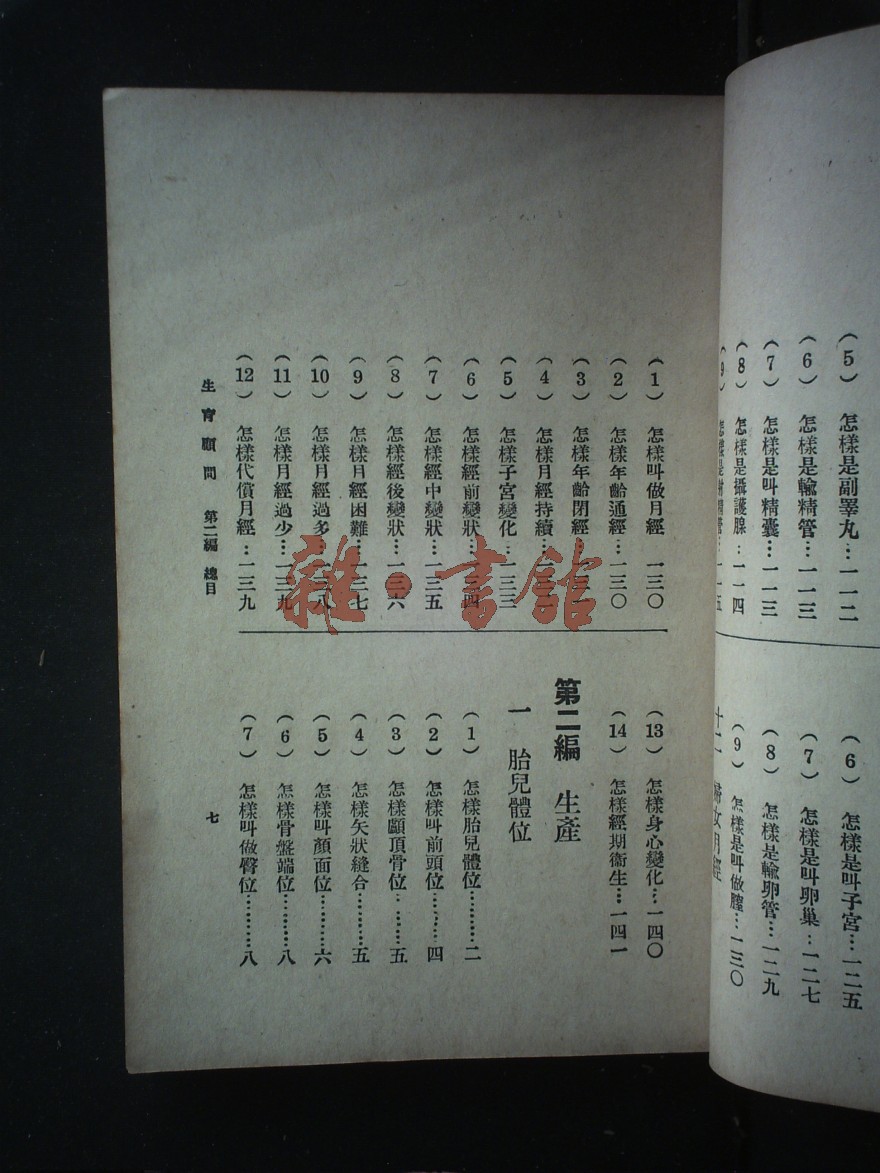 (5) 怎樣是副睪丸…一一二
(6) 怎樣是輸精管…一一三
(7) 怎樣是叫精囊…一一三
(8) 怎樣是攝護腺…一一四
(6) 怎樣是叫子宮…一二五
(7) 怎樣是叫卵巢…一二七
(8) 怎樣是輸卵管…一二九
(9) 怎樣是叫做膣…一三〇
婦女月經
(1) 怎樣叫做月經…一三〇
(2) 怎樣年齡通經…一三〇
(3) 怎樣年齡閉經…一三
(4) 怎樣月經持續…一三
(5) 怎樣子宮變化…一三三
(6) 怎樣經前變狀…一三四
(7) 怎樣經中變狀…一三五
(8) 怎樣經後變狀…一三六
(9) 怎樣月經困難…一三七
(10) 怎樣月經過多…一三八
(11) 怎樣月經過少…一三九
(12) 怎樣代償月經…一三九
(13) 怎樣身心變化…一四〇
(14) 怎樣經期衞生…一四一
第二編 生產
一 胎兒體位
(1) 怎樣胎兒體位………二
(2) 怎樣叫前頭位………四
(3) 怎樣顱頂骨位………五
(4) 怎樣矢狀縫合………五
(5) 怎樣叫顏面位………六
(6) 怎樣骨盤端位………八
(7) 怎樣叫做臀位………八
生育顧問 第二編 總目
七
雜·書館